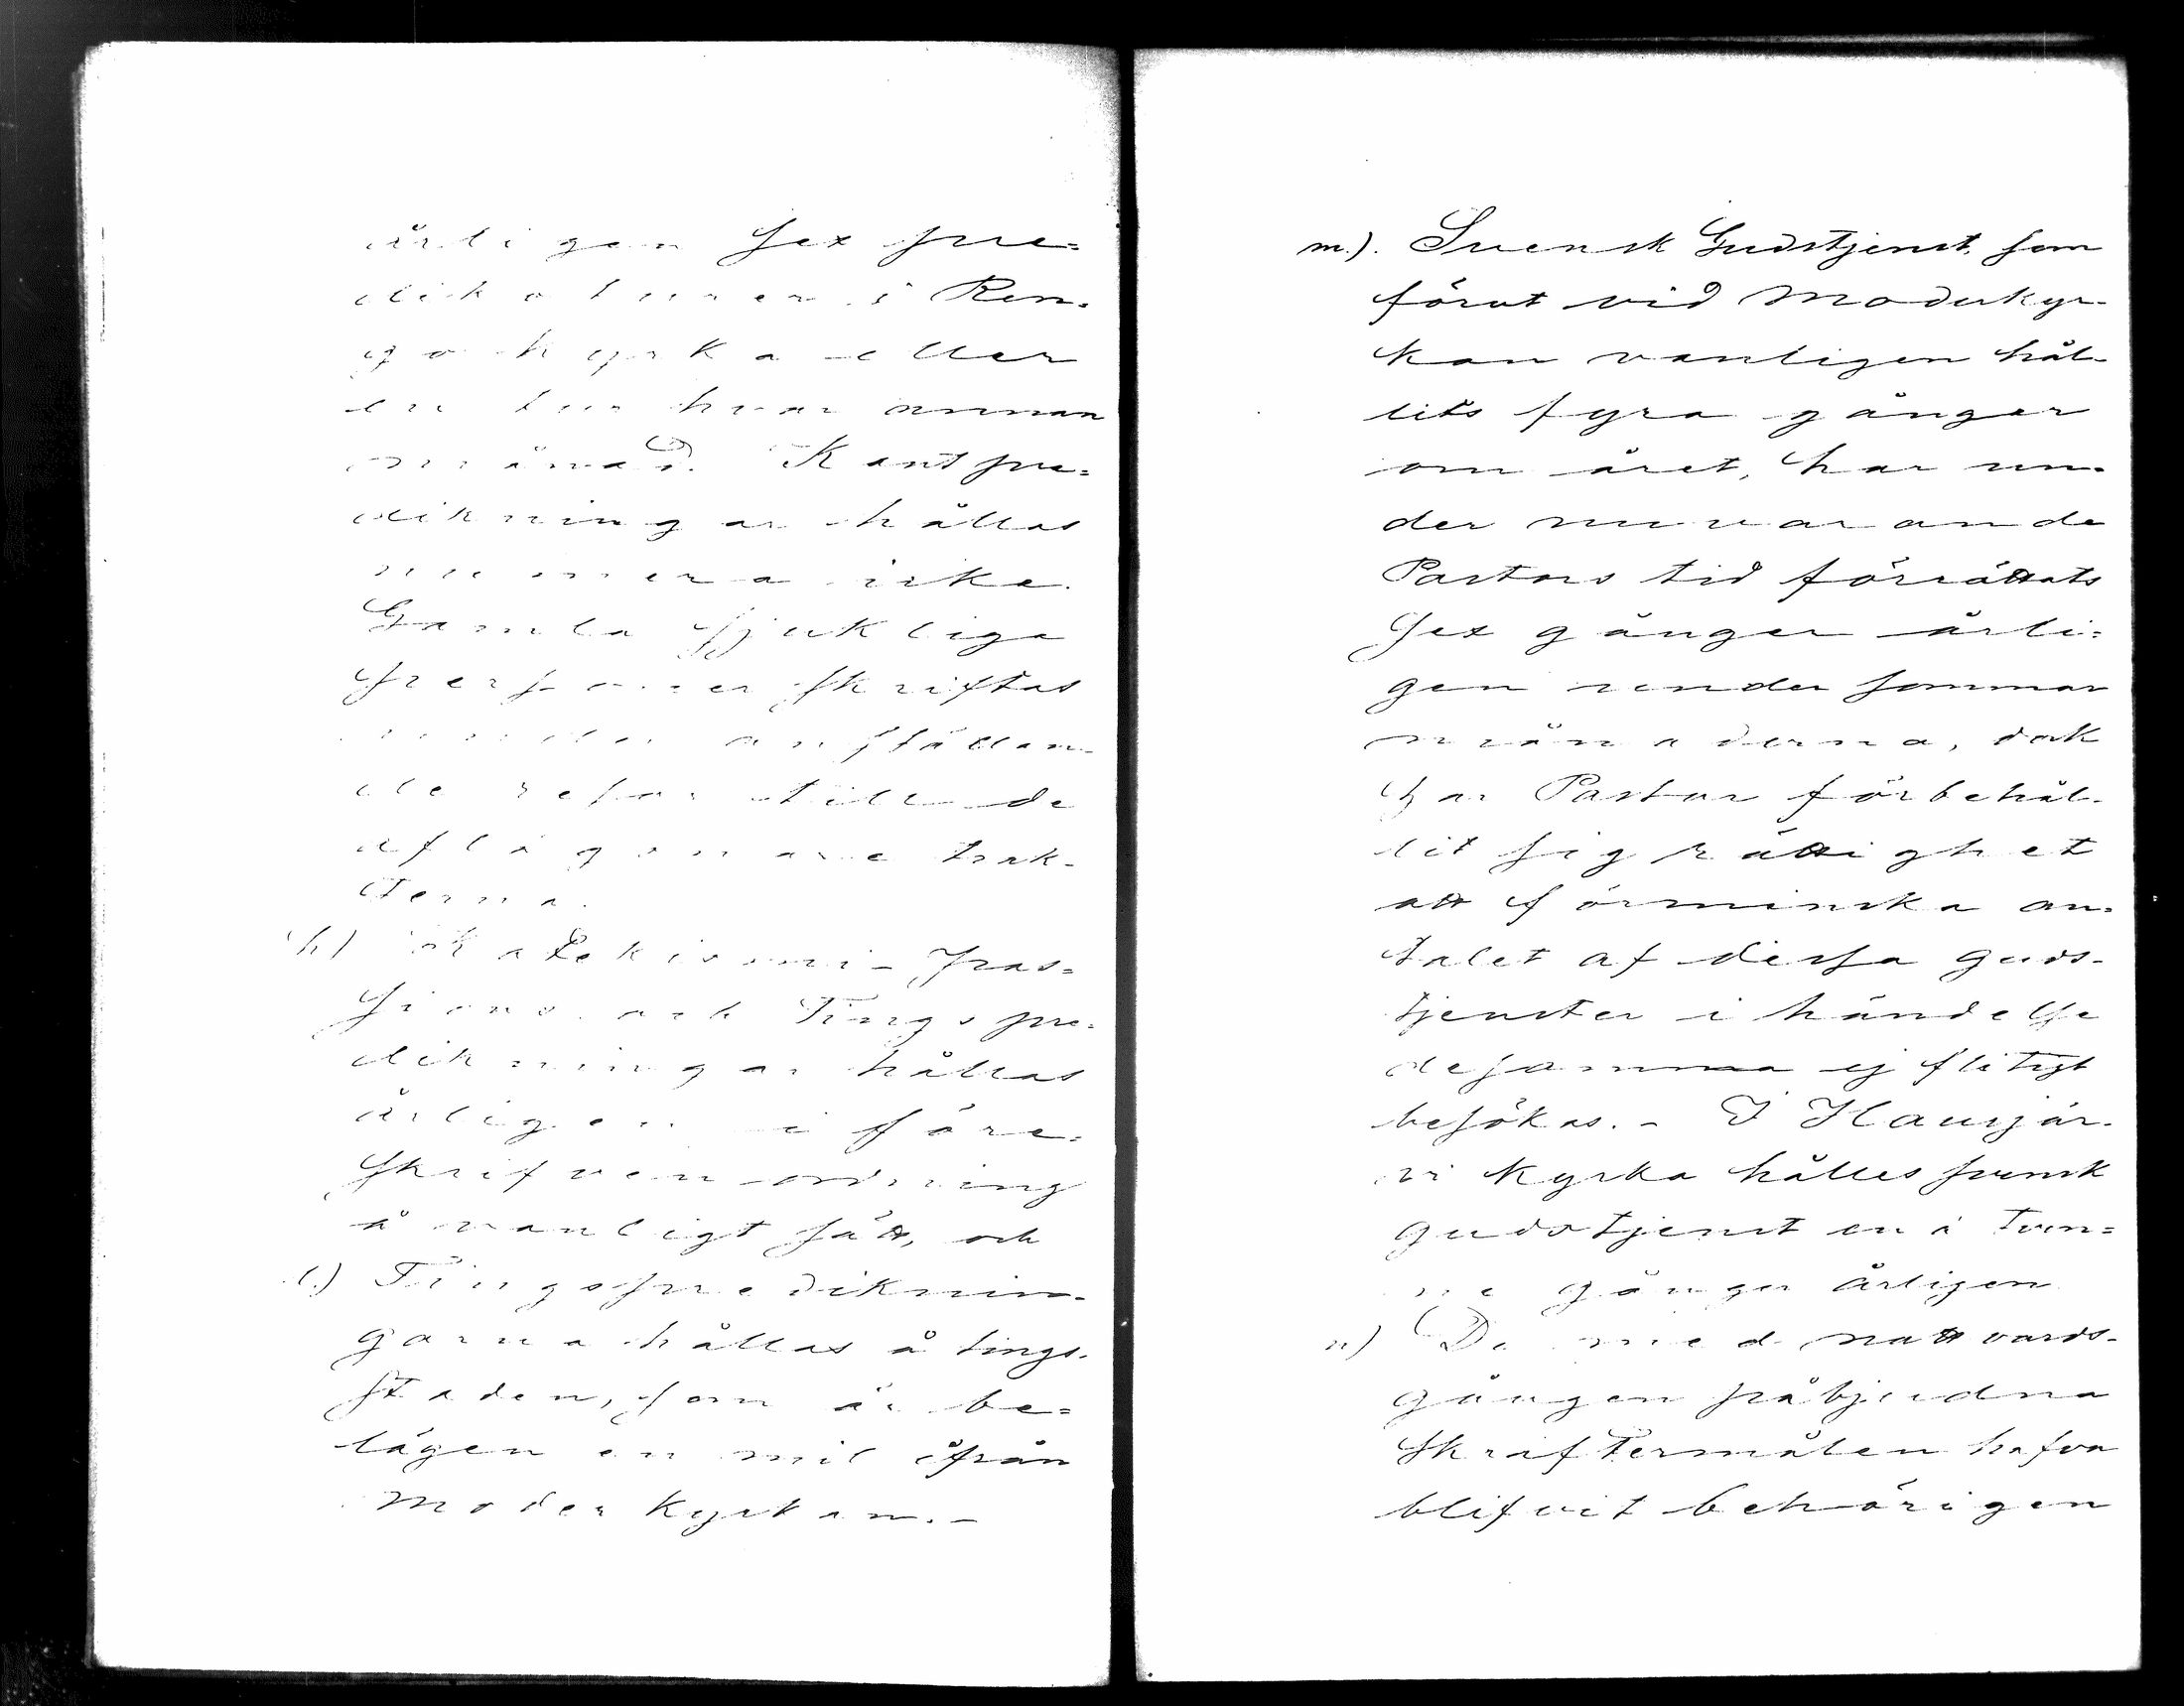 årligen sex pre=
dikoturer i Ren-
go kyrka eller
en tur hvar annan
månad. Kantpre=
dikningar hållas
numera icke.
Gamla sjukliga
personer skriftas
under anställan-
de resor till de
aflägsnare trak-
terna.
k) Katekismi- pas=
sions- och Tingspre-
dikningar hållas
årligen i före=
skrifven ordning
å vanligt sätt, och
l.) Tingsprediknin-
garna hållas å tings-
staden, som är be=
lägen en mil ifrån
Moderkyrkan.-
m.). Svensk Gudstjenst, som
förut vid Moderkyr-
kan vanligen hål-
lits fyra gånger
om året, har un-
der nuvarande
Pastors tid förrättats
Sex gånger årli=
gen under sommar
månaderna, dock
har Pastor förbehål-
lit sig rättighet
att förminska an-
talet af dessa guds-
tjenster i händelse
desamma ej flitigt
besökas.- I Hausjär-
vi kyrka hålles svensk
gudstjenst en à tven=
ne gånger årligen
n) De med nattvards-
gången påbjudna
Skriftermålen hafva
blifvit behörigen